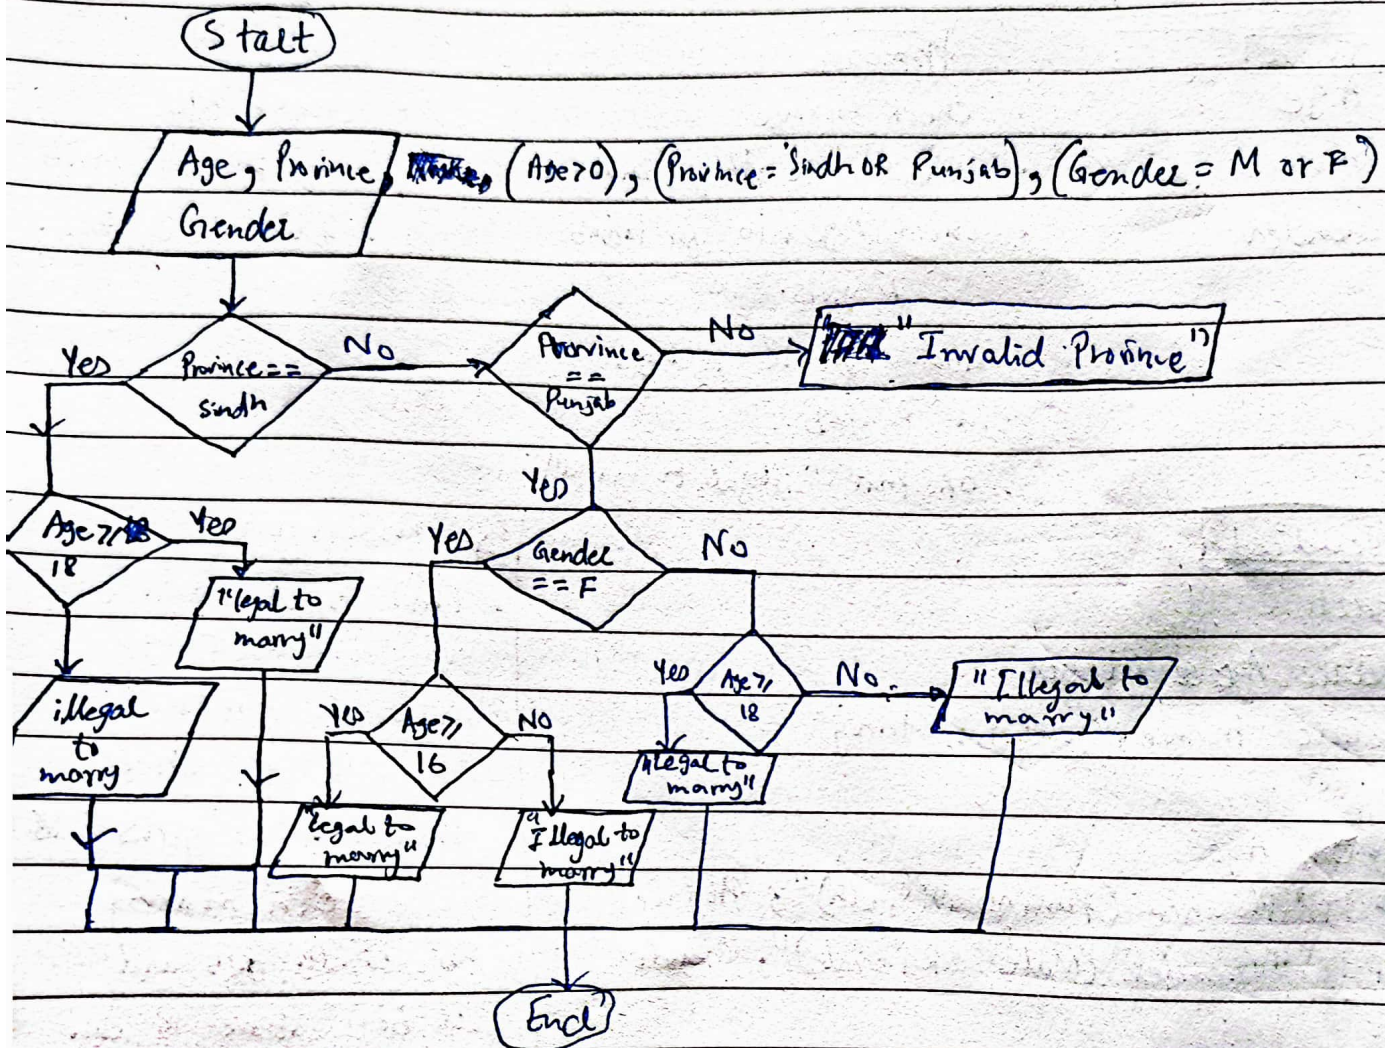 Start
Age, Province, (Age>0), (Province = Sindh OR Punjab), (Gender = M or F)
Gender
Province ==
sindh
Yes
No
Prorvince
==
Punjab
No
" Invalid Province"
Yes
Age ⩾
18
Yes
"legal to
marry"
illegal
to
marry
Gender
== F
Yes
No
Age ⩾
16
Yes
No
"legal to
marry"
"Illegal to
marry"
Age ⩾
18
Yes
No.
"legal to
marry"
"Illegal to
marry"
End